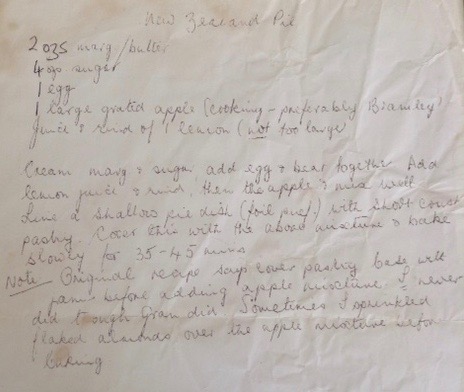 New Zealand Pie
2 ozs marg/butter
4 ozs sugar
1 egg
1 large grated apple (cooking - preferably Bramley)
Juice & rind of 1 lemon (not too large)
Cream marg & sugar add egg & beat together Add
lemon juice & rind, then the apple & mix well
Line a shallow pie dish (foil pref.) with short crust
pastry. Cover this with the above mixture & bake
slowly for 35-45 mins
Note Original recipe says cover pastry base with
jam before adding apple mixture. I never
did though Gran did. Sometimes I sprinkled
flaked almonds over the apple mixture before
baking